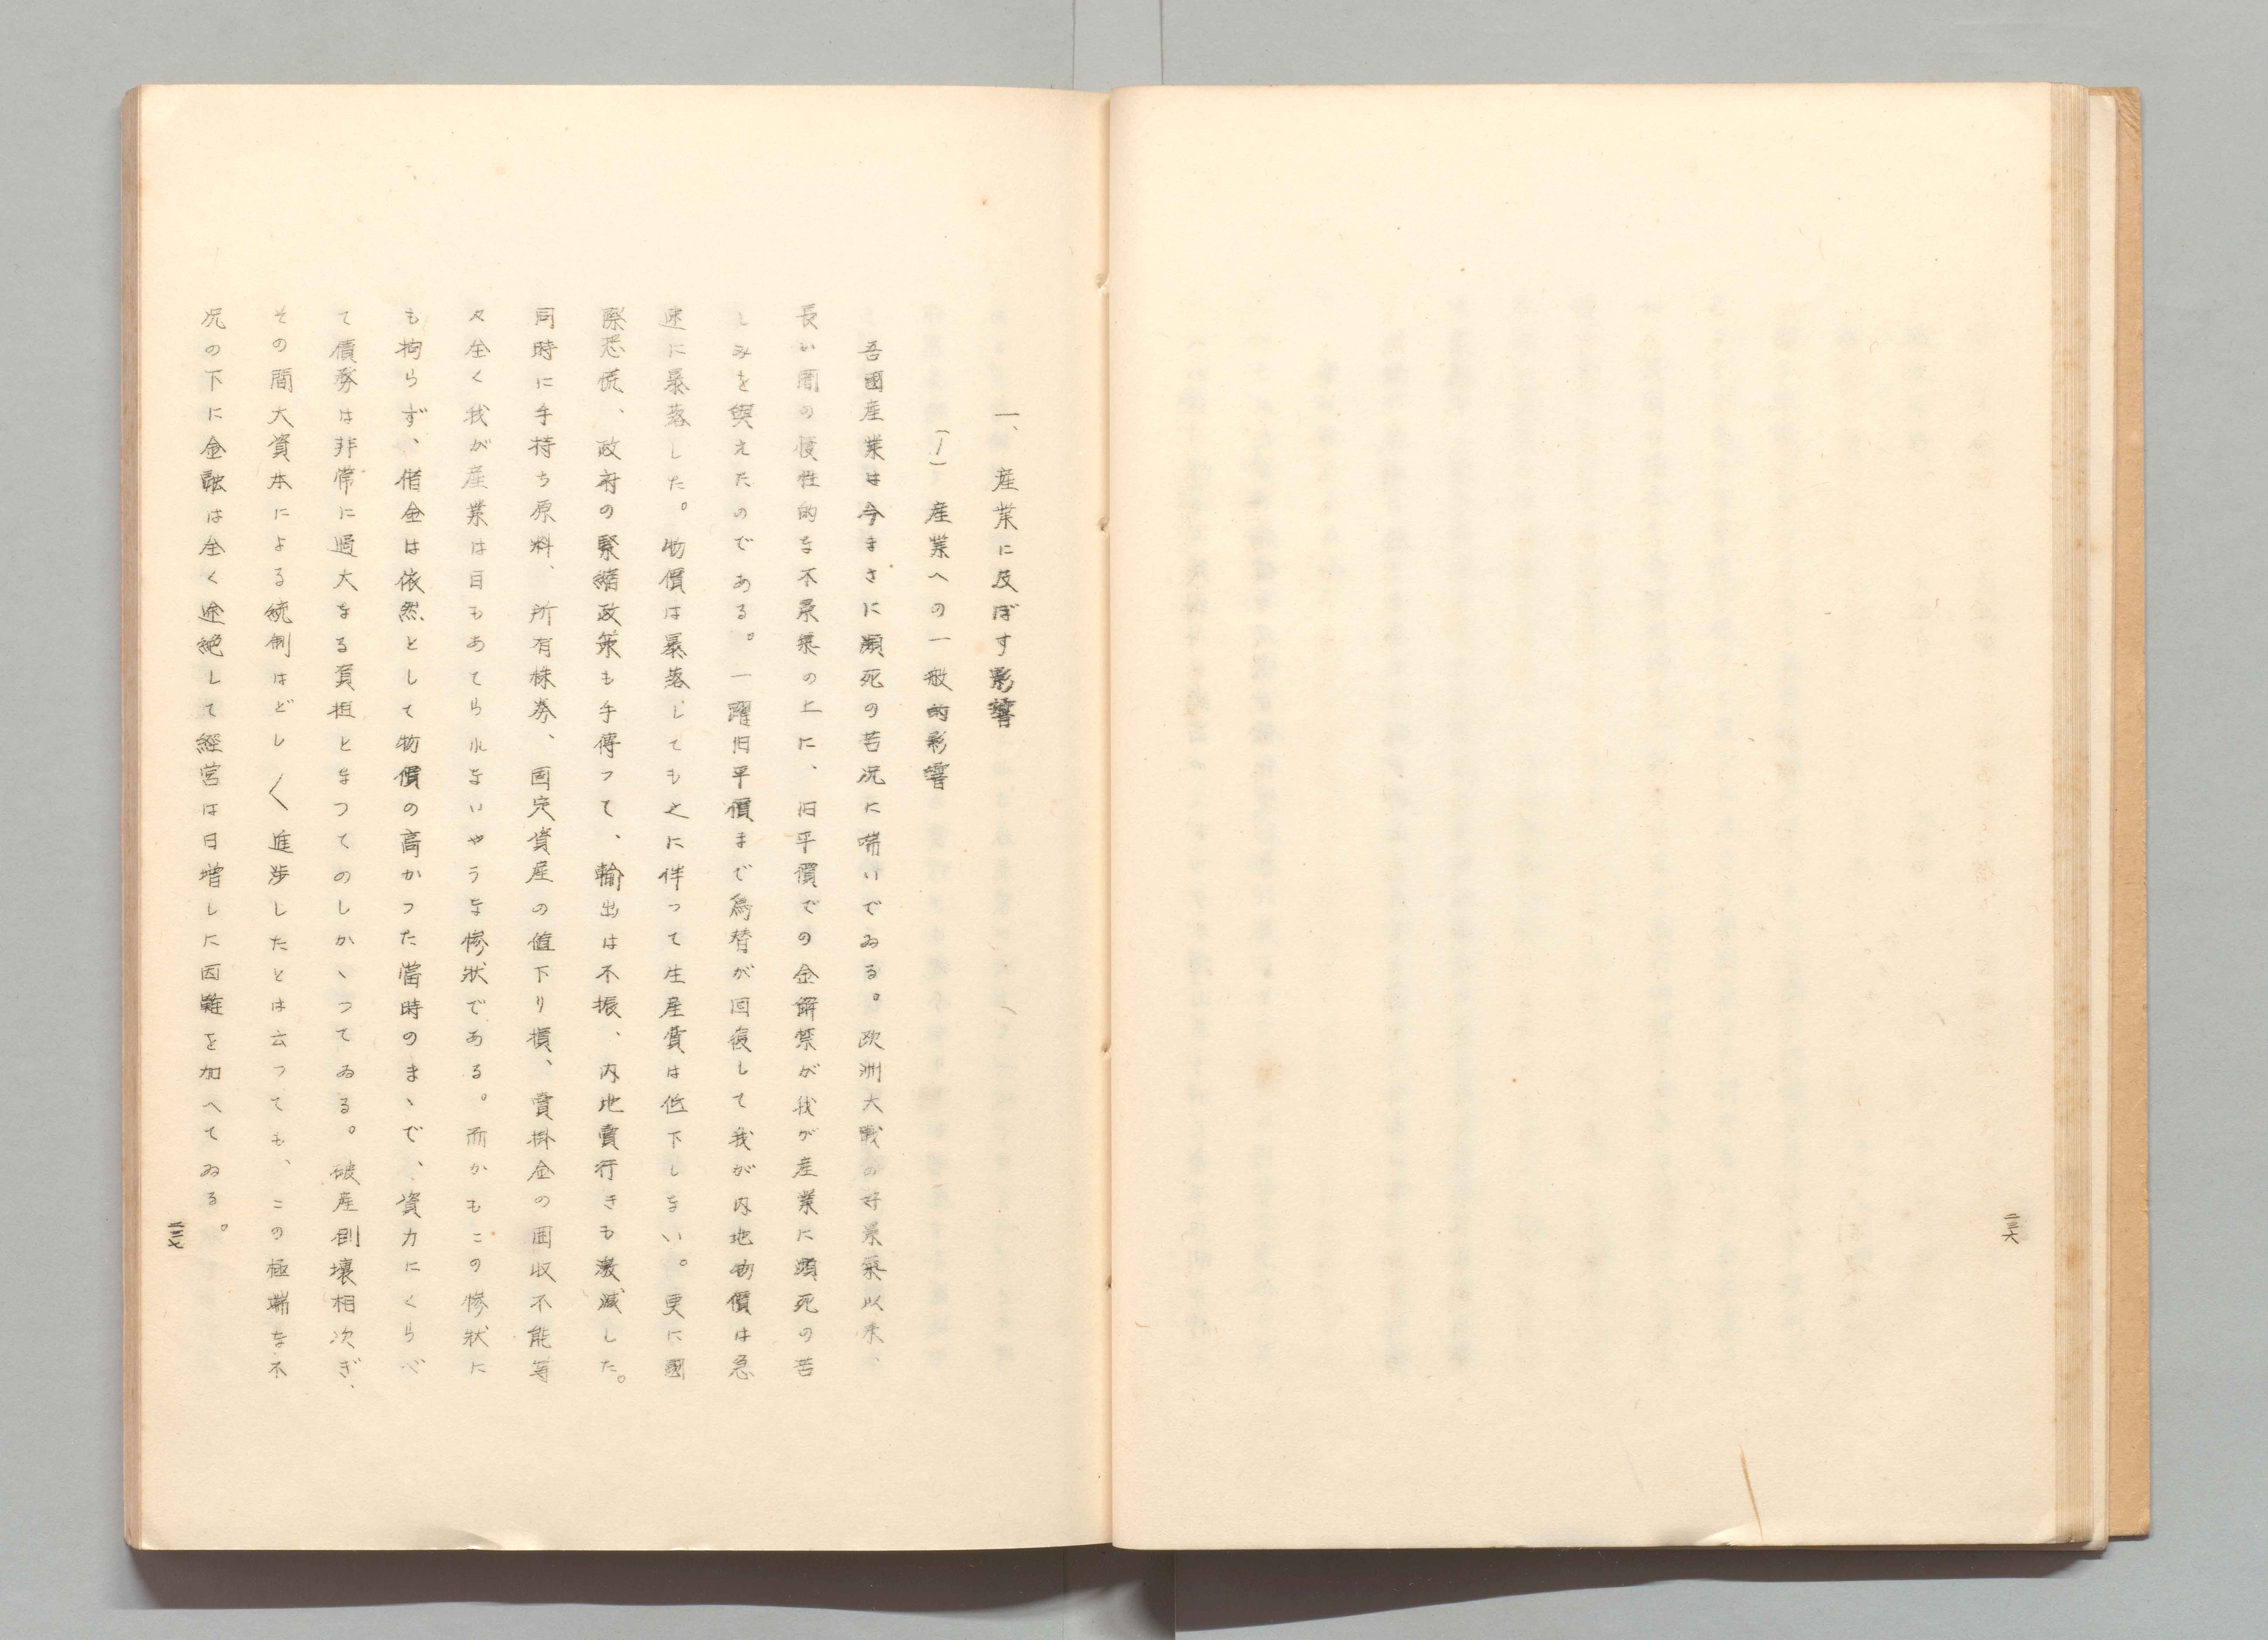 二三六
一、産業に及ぼす影響
(1) 産業への一般的影響
吾國産業は今まさに瀕死の苦況に喘いでゐる。欧洲大戰の好景氣以来、
長い間の慢性的な不景氣の上に、旧平價での金解禁が我が産業に瀕死の苦
しみを與えたのである。一躍旧平價まで為替が回復して我が内地物價は急
速に暴落した。物價は暴落しても之に伴って生産費は低下しない。更に國
際恐慌、政府の緊縮政策も手傳つて、輸出は不振、内地賣行きも激減した。
同時に手持ち原料、所有株券、固定資産の値下り損、賣掛金の回収不能等
々全く我が産業は目もあてられないやうな惨狀である。而かもこの惨狀に
も拘らず、借金は依然として物價の高かつた當時のまゝで、資力にくらべ
て債務は非常に過大なる負担となつてのしかゝつてゐる。破産倒壊相次ぎ、
その間大資本による統制はどし〱進渉したとは云つても、この極端な不
況の下に金融は全く途絶して経営は日増しに困難を加へてゐる。
二三七